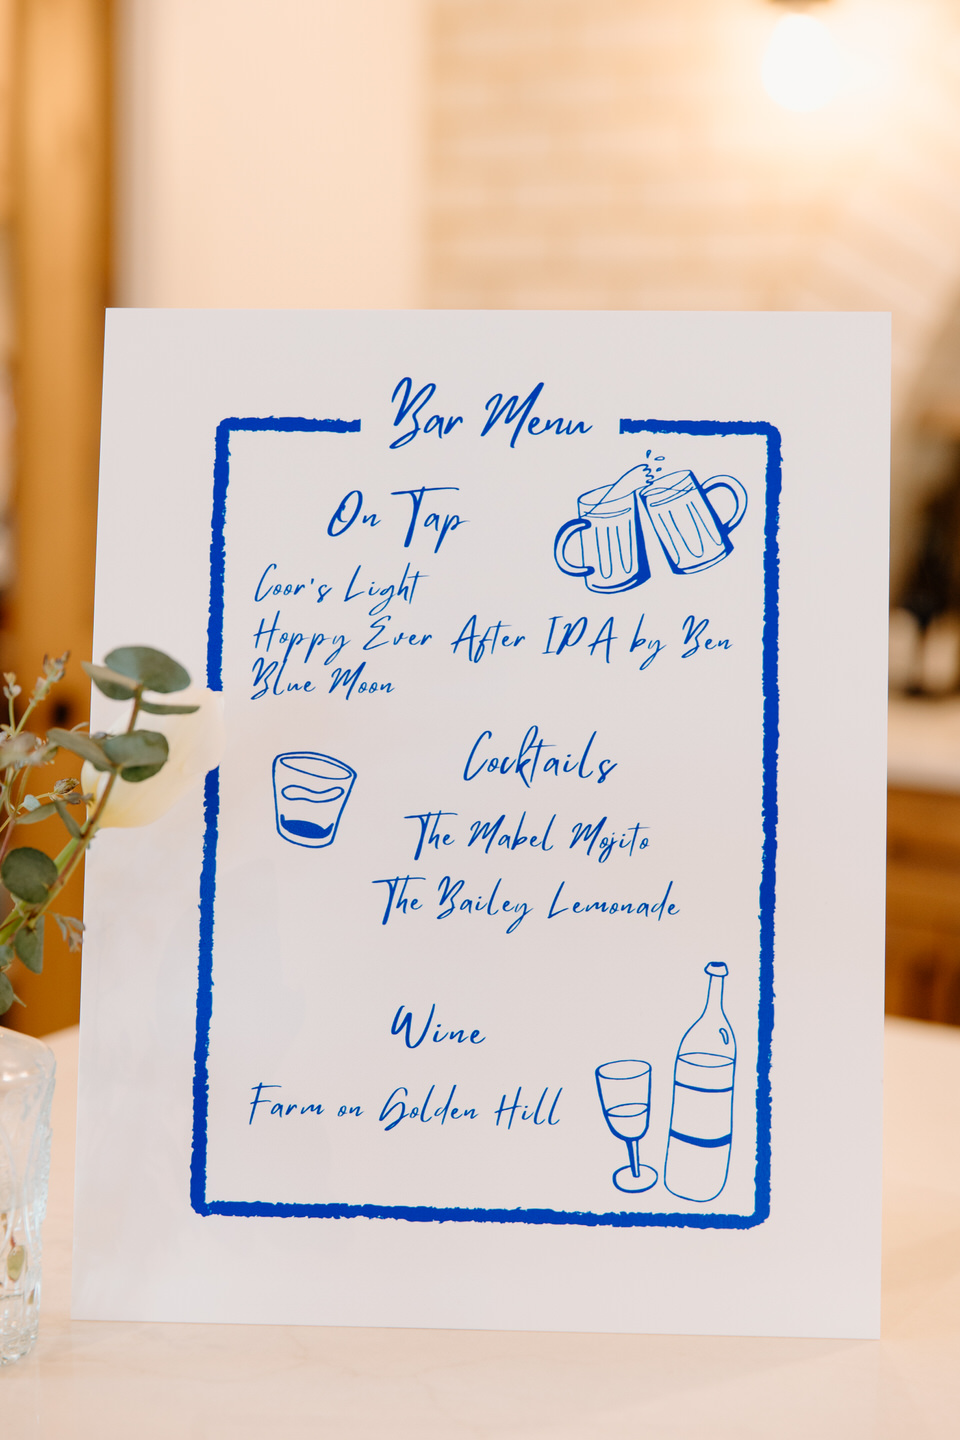 Bar Menu
On Tap
Coor's Light
Hoppy Ever After IPA by Ben
Blue Moon
Cocktails
The Mabel Mojito
The Bailey Lemonade
Wine
Farm on Golden Hill